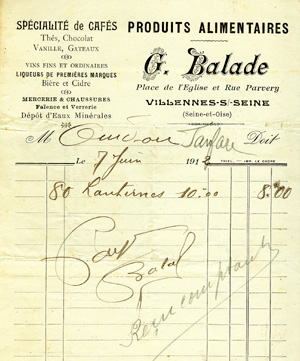 SPÉCIALITÉ de CAFÉS
Thés, Chocolat
VANILLE, GATEAUX
VINS FINS ET ORDINAIRES
LIQUEURS DE PREMIÈRES MARQUES
Bière et Cidre
MERCERIE & CHAUSSURES
Faïence et Verrerie
Dépôt d'Eaux Minérales
PRODUITS ALIMENTAIRES
G. Balade
Place de l'Eglise et Rue Parvery
VILLENNES-S/-SEINE
(Seine-et-Oise)
M Fanfare Doit
Le 7 Juin 191
80 Lanternes 10.00 8.00
Balad